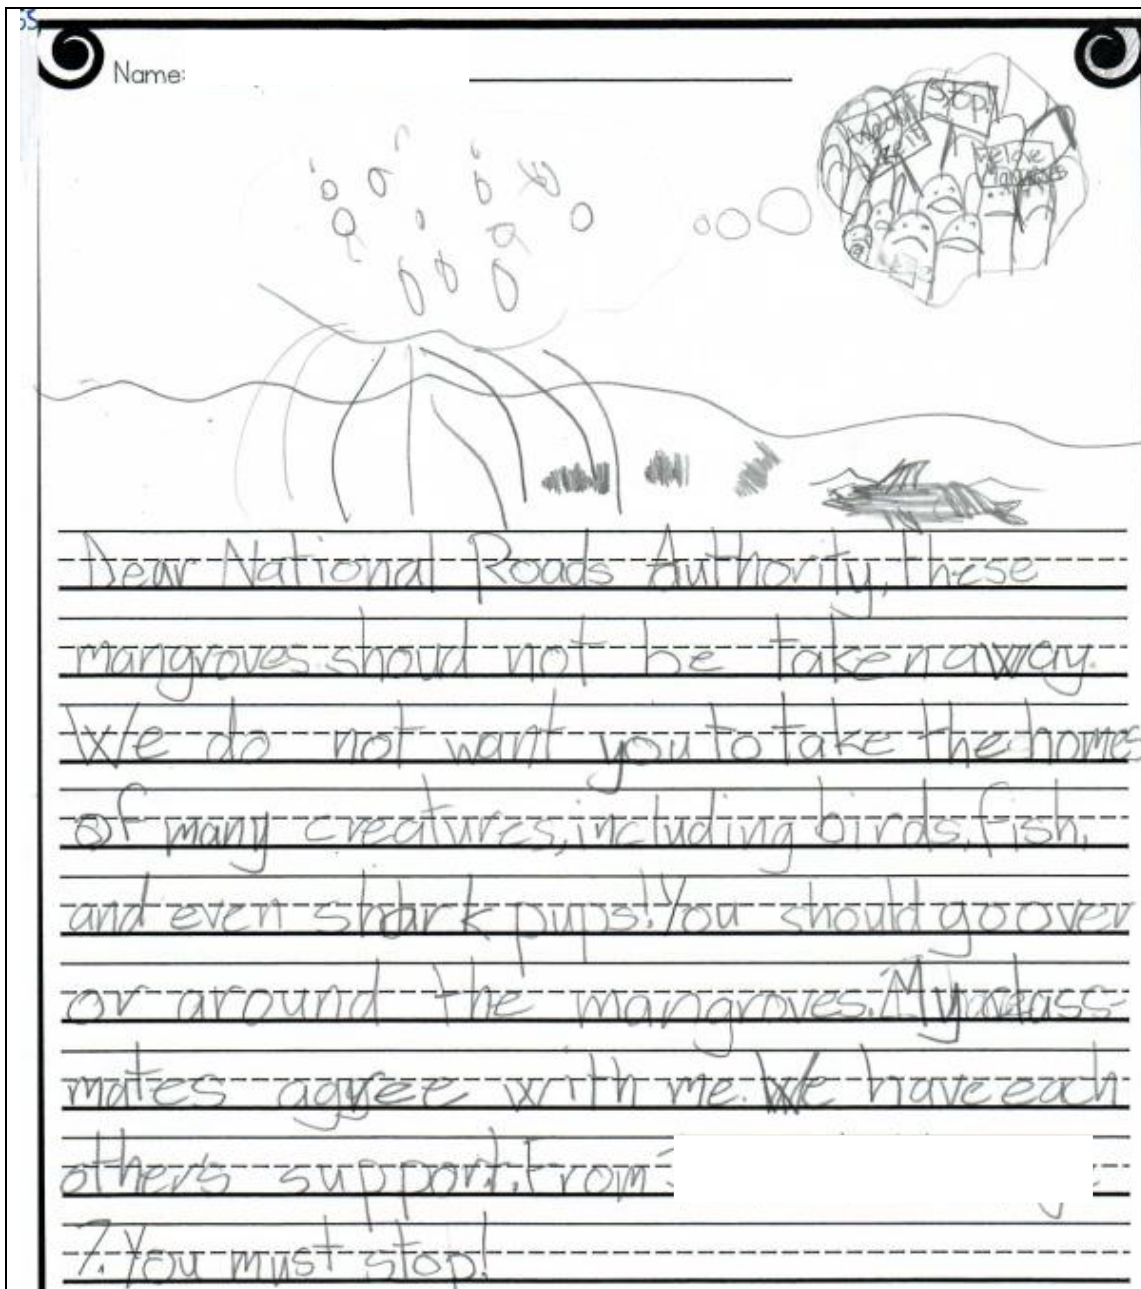 SS
Name:
Stop!
We love
Mangroves
Dear National Roads Authority, these
mangroves shoud not be taken away.
We do not want you to take the homes
of many creatures, including birds, fish,
and even shark pups! You should go over
or around the mangroves. My class-
mates agree with me. We have each
other's support. From
7. You must stop!